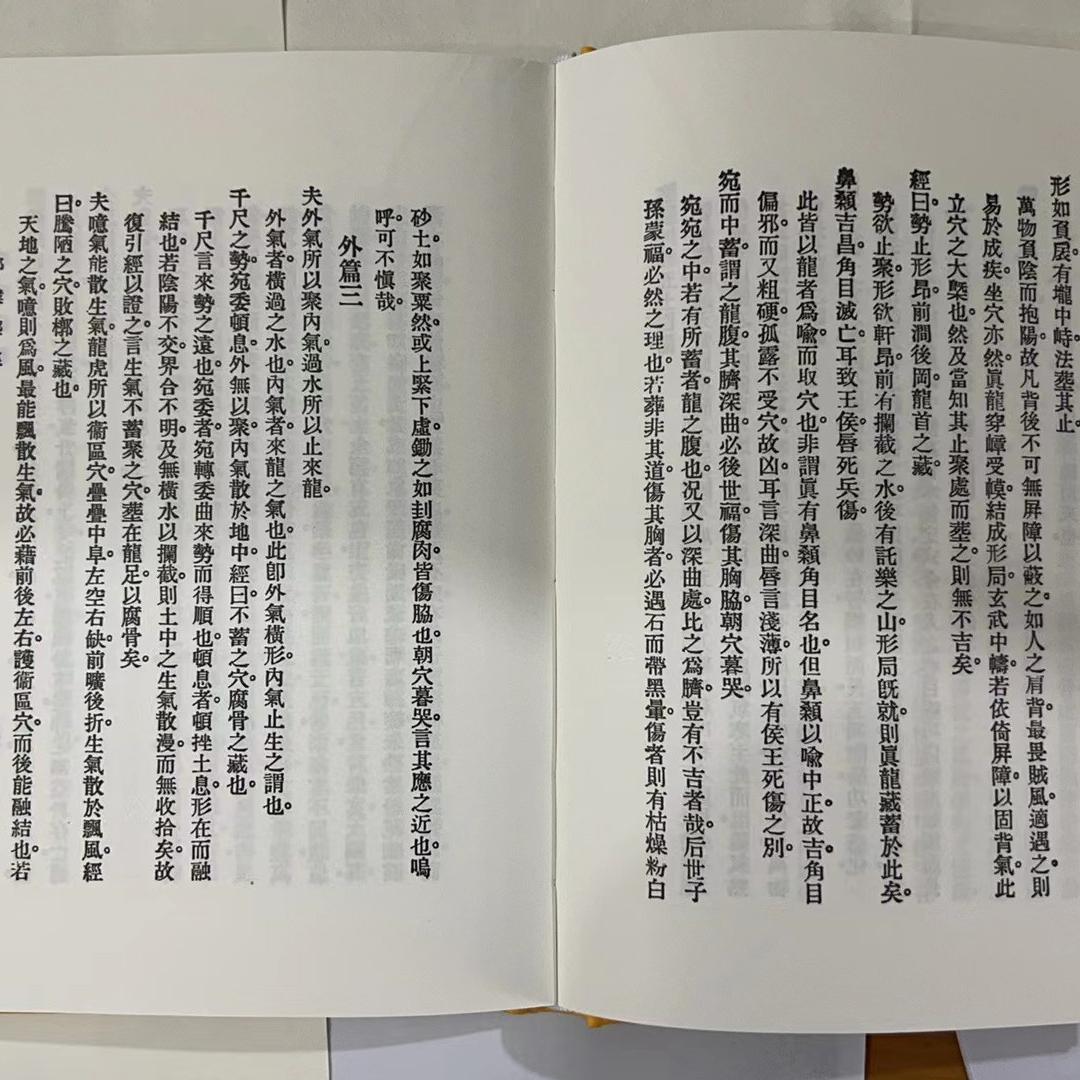 形如負扆。有壠中峙。法塟其止。
萬物負陰而抱陽。故凡背後不可無屏障以蔽之。如人之肩背最畏賊風。適遇之則
易於成疾。坐穴亦然。眞龍穿嶂受幙。結成形局。玄武中幬。若依倚屏障。以固背氣。此
立穴之大槩也。然及當知其止聚處而塟之。則無不吉矣。
經曰。勢止形昂。前澗後岡。龍首之藏。
勢欲止聚。形欲軒昂。前有攔截之水。後有託樂之山。形局旣就。則眞龍藏蓄於此矣。
鼻顙吉昌。角目滅亡。耳致王侯。唇死兵傷。
此皆以龍者爲喩。而取穴也。非謂眞有鼻顙角目名也。但鼻顙以喩中正。故吉。角目
偏邪。而又粗硬孤露不受穴。故凶。耳言深曲。唇言淺薄。所以有侯王死傷之別。
宛而中蓄。謂之龍腹。其臍深曲。必後世福。傷其胸脇。朝穴暮哭。
宛宛之中。若有所蓄者。龍之腹也。况又以深曲處。比之爲臍。豈有不吉者哉。后世子
孫蒙福。必然之理也。若葬非其道。傷其胸者。必遇石而帶黑暈。傷者則有枯燥粉白
砂土。如聚粟然。或上緊下虛。鋤之如刲腐肉。皆傷脇也。朝穴暮哭。言其應之近也。嗚
呼。可不愼哉。
外篇三
夫外氣所以聚內氣。過水所以止來龍。
外氣者。橫過之水也。內氣者。來龍之氣也。此卽外氣橫形。內氣止生之謂也。
千尺之勢。宛委頓息。外無以聚內。氣散於地中。經曰。不蓄之穴。腐骨之藏也。
千尺言來勢之遠也。宛委者。宛轉委曲來勢而得順也。頓息者。頓挫土息。形在而融
結也。若陰陽不交。界合不明。及無橫水以攔截。則土中之生氣散漫。而無收拾矣。故
復引經以證之。言生氣不蓄聚之穴。塟在龍足。以腐骨矣。
夫噫氣能散生氣。龍虎所以衞區穴。疊疊中阜。左空右缺。前曠後折。生氣散於飄風。經
曰。騰陋之穴。敗槨之藏也。
天地之氣。噫則爲風。最能飄散生氣。故必藉前後左右。護衞區穴。而後能融結也。若